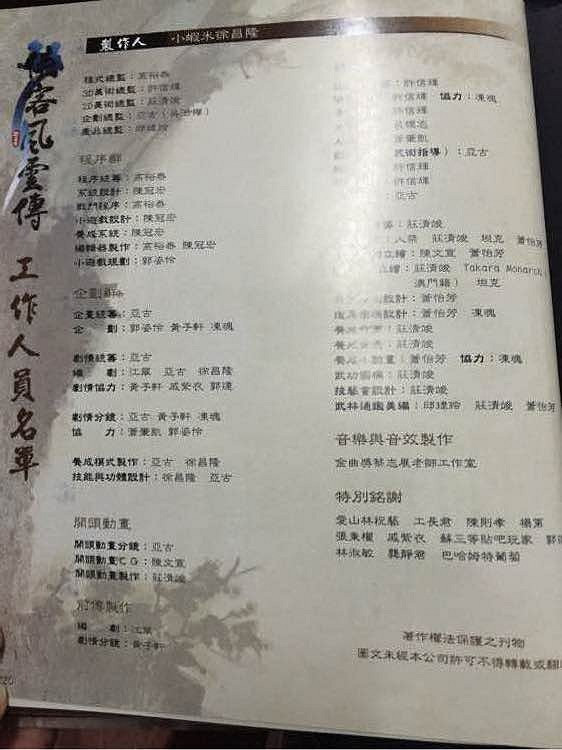 俠客風雲傳 工作人員名單
製作人 小蝦米徐昌隆
程式總監：高裕泰
3D美術總監：許信輝
2D美術總監：莊清竣
企劃總監：亞古
產品總監：邱建玲
程序群
程序統籌：高裕泰
系統設計：陳冠宏
戰鬥程序：高裕泰
小遊戲設計：陳冠宏
養成系統：陳冠宏
編輯器製作：高裕泰 陳冠宏
小遊戲規劃：郭姿伶
企劃群
企業統籌：亞古
企 劃：郭姿伶 黃子軒 凍魂
劇情統籌：亞古
編 劇：江犖 亞古 徐昌隆
劇情協力：黃子軒 戚紫衣 郭達
劇情分鏡：亞古 黃子軒 凍魂
協 力：蕭秉凱 郭姿伶
養成模式製作：亞古 徐昌隆
技能與功體設計：徐昌隆 亞古
開頭動畫
開頭動畫分鏡：亞古
開頭動畫CG：陳文宣
開頭動畫製作：莊清竣
前傳製作
編 劇：江犖
劇情分鏡：黃子軒
：許信輝
許信輝 協力：凍魂
許信輝
蕭秉凱
美術指導）：亞古
許信輝
許信輝
：亞古
莊清竣
莊清竣 坦克 蕭怡
陳文宣 蕭怡芳
莊清竣 Takara Monaris
澳門籍） 坦克
設計：蕭怡芳
設計：蕭怡芳 凍魂
莊清竣
莊清竣
養成小動畫：蕭怡芳 協力：凍魂
武功圖標：莊清竣
技藝書設計：莊清竣
武林通鑑美編：邱建玲 莊清竣 蕭怡
音樂與音效製作
金曲獎蔡志展老師工作室
特別銘謝
愛山林祝藝 工長君 陳則孝 楊第
張秉權 戚紫衣 蘇三等貼吧玩家 郭
林淑敏 龔靜君 巴哈姆特葡萄
著作權法保護之刊物
圖文未經本公司許可不得轉載或翻
020